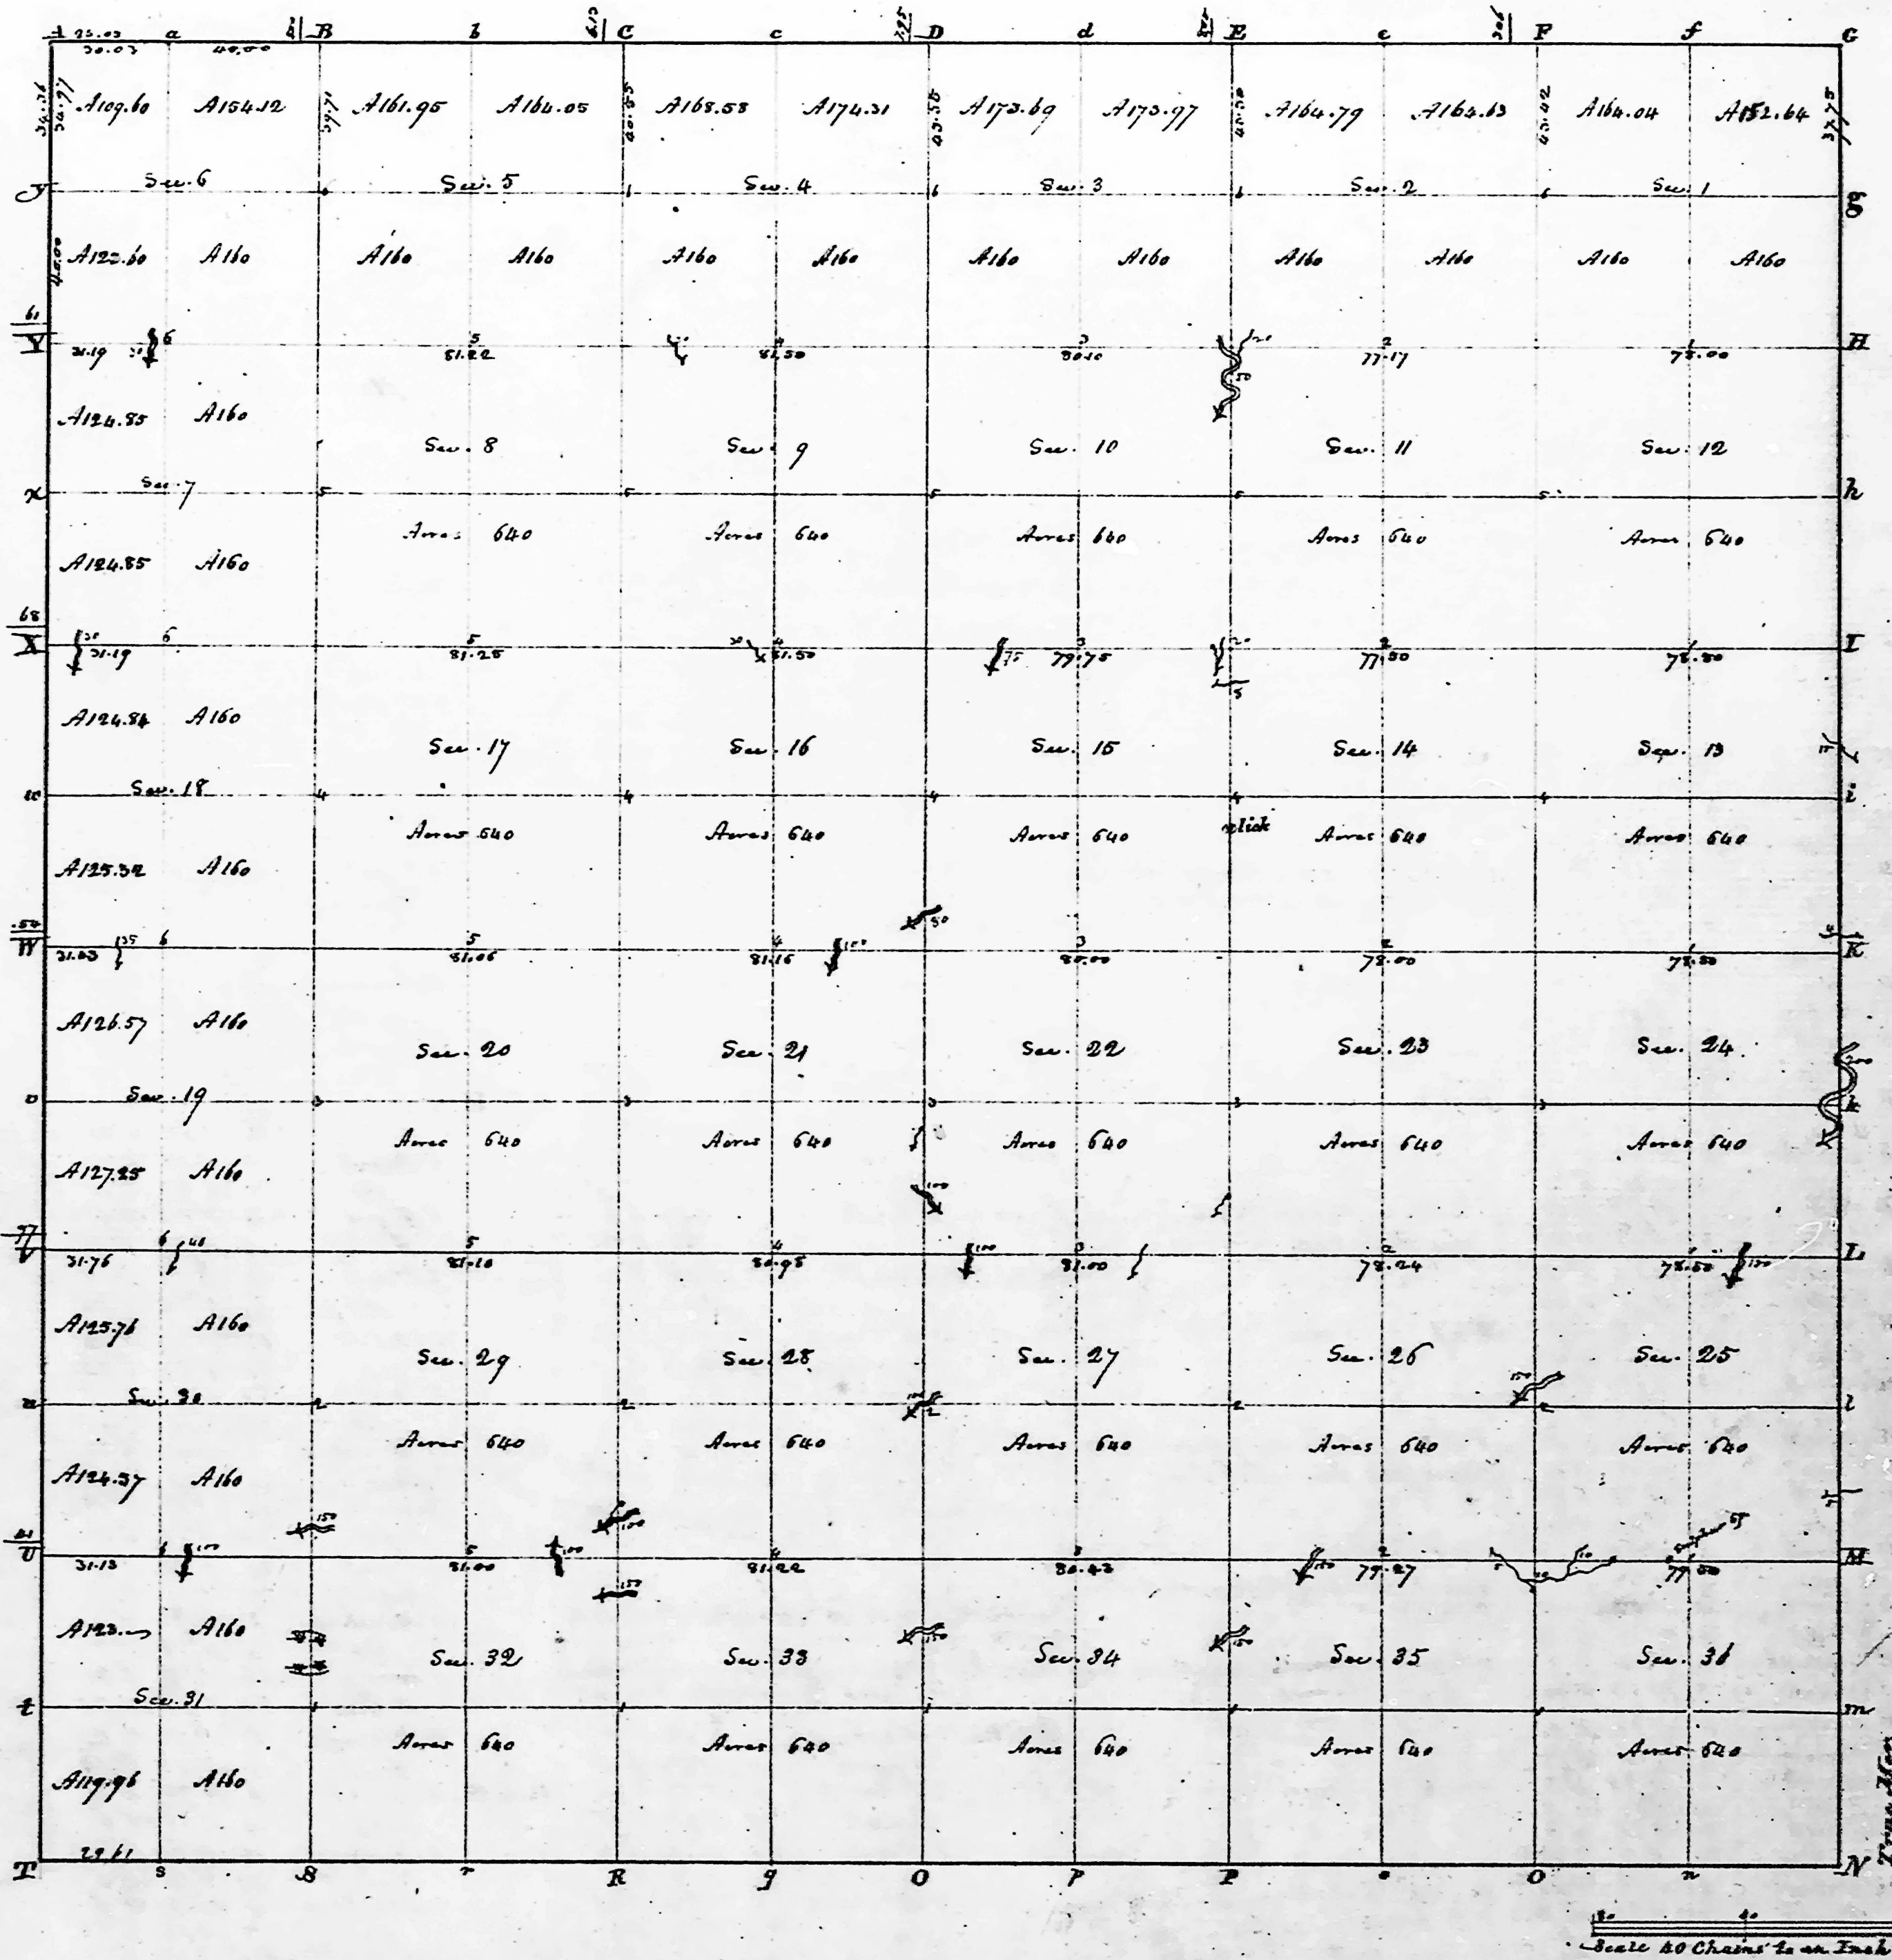 a B b C c D d E e F f G
30.03 40.00
A109.60 A154.12 A161.95 A164.05 A168.58 A174.31 A173.69 A173.97 A164.79 A164.63 A164.04 A152.64
y Sec. 6 Sec. 5 Sec. 4 Sec. 3 Sec. 2 Sec. 1 g
A160 A160 A160 A160 A160 A160 A160 A160 A160 A160 A160
61
Y 31.19 6 5 3 2 H
81.22 81.50 80.10 77.17 78.00
50
A124.85 A160
Sec. 8 Sec. 9 Sec. 10 Sec. 11 Sec. 12
x Sec. 7 5 5 5 5 5 h
Acres 640 Acres 640 Acres 640 Acres 640 Acres 640
A124.85 A160
68
X 31.19 6 5 4 3 2 I
81.25 81.50 75 79.75 77.50 78.50
5
A124.84 A160
Sec. 17 Sec. 16 Sec. 15 Sec. 14 Sec. 13
w Sec. 18 4 4 4 4 4 i
Acres 640 Acres 640 Acres 640 lick Acres 640 Acres 640
A125.32 A160
50
W 35 6 5 4 3 2 K
31.63 81.06 81.16 80.00 78.00 78.50
A126.57 A160
Sec. 20 Sec. 21 Sec. 22 Sec. 23 Sec. 24
Sec. 19 3 3 3 3 3 k
Acres 640 Acres 640 Acres 640 Acres 640 Acres 640
A127.25 A160
100
V 31.76 6 5 4 100 3 2 L
81.10 80.95 81.00 78.24 78.50
A125.76 A160
Sec. 29 Sec. 28 Sec. 27 Sec. 26 Sec. 25
u Sec. 30 2 2 2 2 2 l
Acres 640 Acres 640 Acres 640 Acres 640 Acres 640
A124.37 A160
150
U 31.13 6 100 5 100 4 3 2 M
81.00 81.22 80.43 79.27 77.50
150
A160
150 150
Sec. 32 Sec. 33 Sec. 34 Sec. 35 Sec. 36
t Sec. 31 m
Acres 640 Acres 640 Acres 640 Acres 640 Acres 640
A119.96 A160
29.61
T s S r R q p P o O n N
80 40
Scale 40 Chains to an Inch